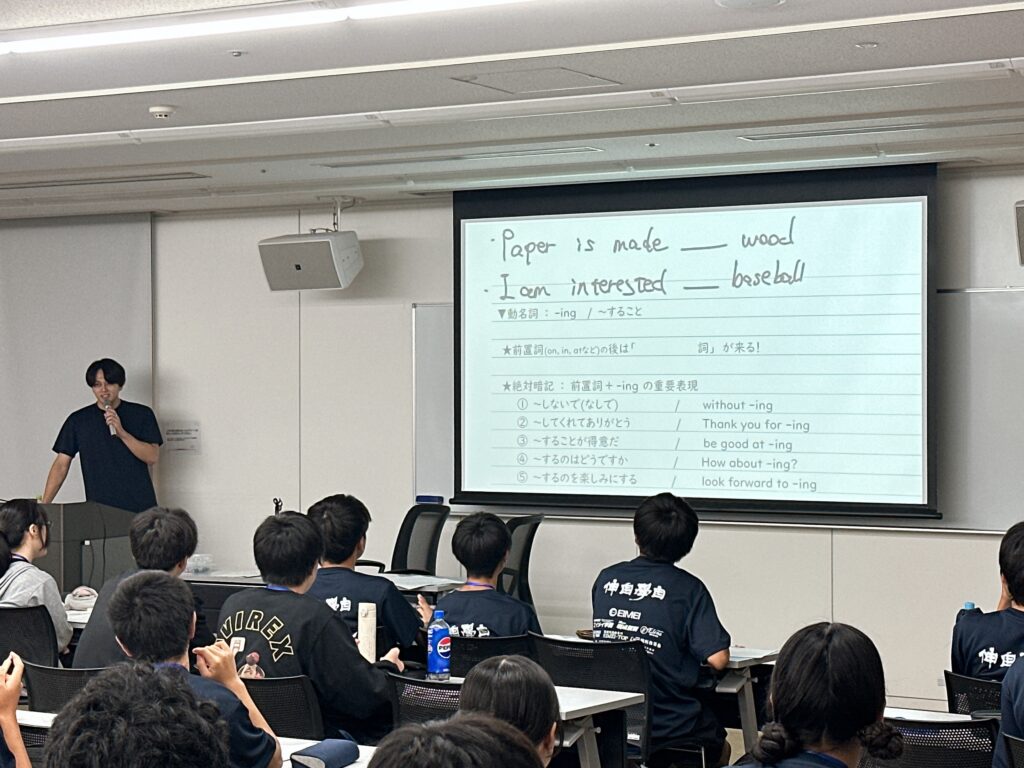 · Paper is made ___ wood
· I am interested ___ baseball
▼動名詞 : -ing / ~すること
★前置詞(on, in, atなど)の後は「 詞」が来る!
★絶対暗記 : 前置詞 + -ing の重要表現
① ~しないで(なしで) / without -ing
② ~してくれてありがとう / Thank you for -ing
③ ~することが得意だ / be good at -ing
④ ~するのはどうですか / How about -ing?
⑤ ~するのを楽しみにする / look forward to -ing
VIREX
pepsi
EIMEI